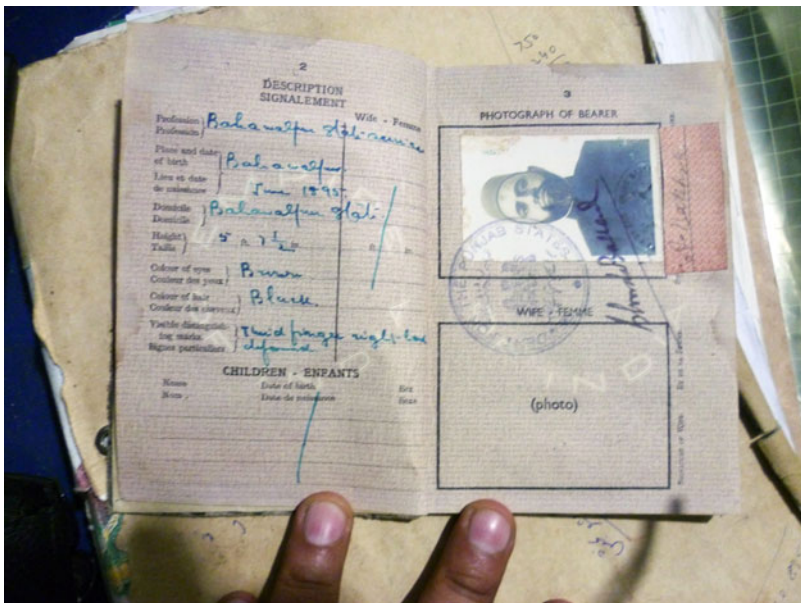 2
DESCRIPTION
SIGNALEMENT
Wife - Femme
Profession
Profession
Bahawalpur State service
Place and date
of birth
Bahawalpur
Lieu et date
de naissance
June 1895
Domicile
Domicile
Bahawalpur State
Height
Taille
5 ft. 7 1/2 in.
Colour of eyes
Couleur des yeux
Brown
Colour of hair
Couleur des cheveux
Black.
Visible distinguish-
ing marks
Signes particuliers
Third finger right
CHILDREN - ENFANTS
Name
Date of birth
Sex
Nom
Date de naissance
Sexe
3
PHOTOGRAPH OF BEARER
FOR THE PUNJAB STATES
WIFE - FEMME
(photo)
750
240